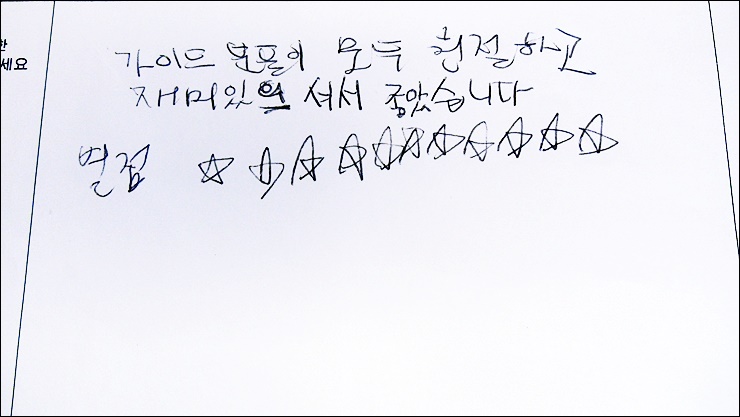 세요
가이드 분들이 모두 친절하고
재미있으셔서 좋았습니다
별점 ☆☆☆☆☆☆☆☆☆☆☆